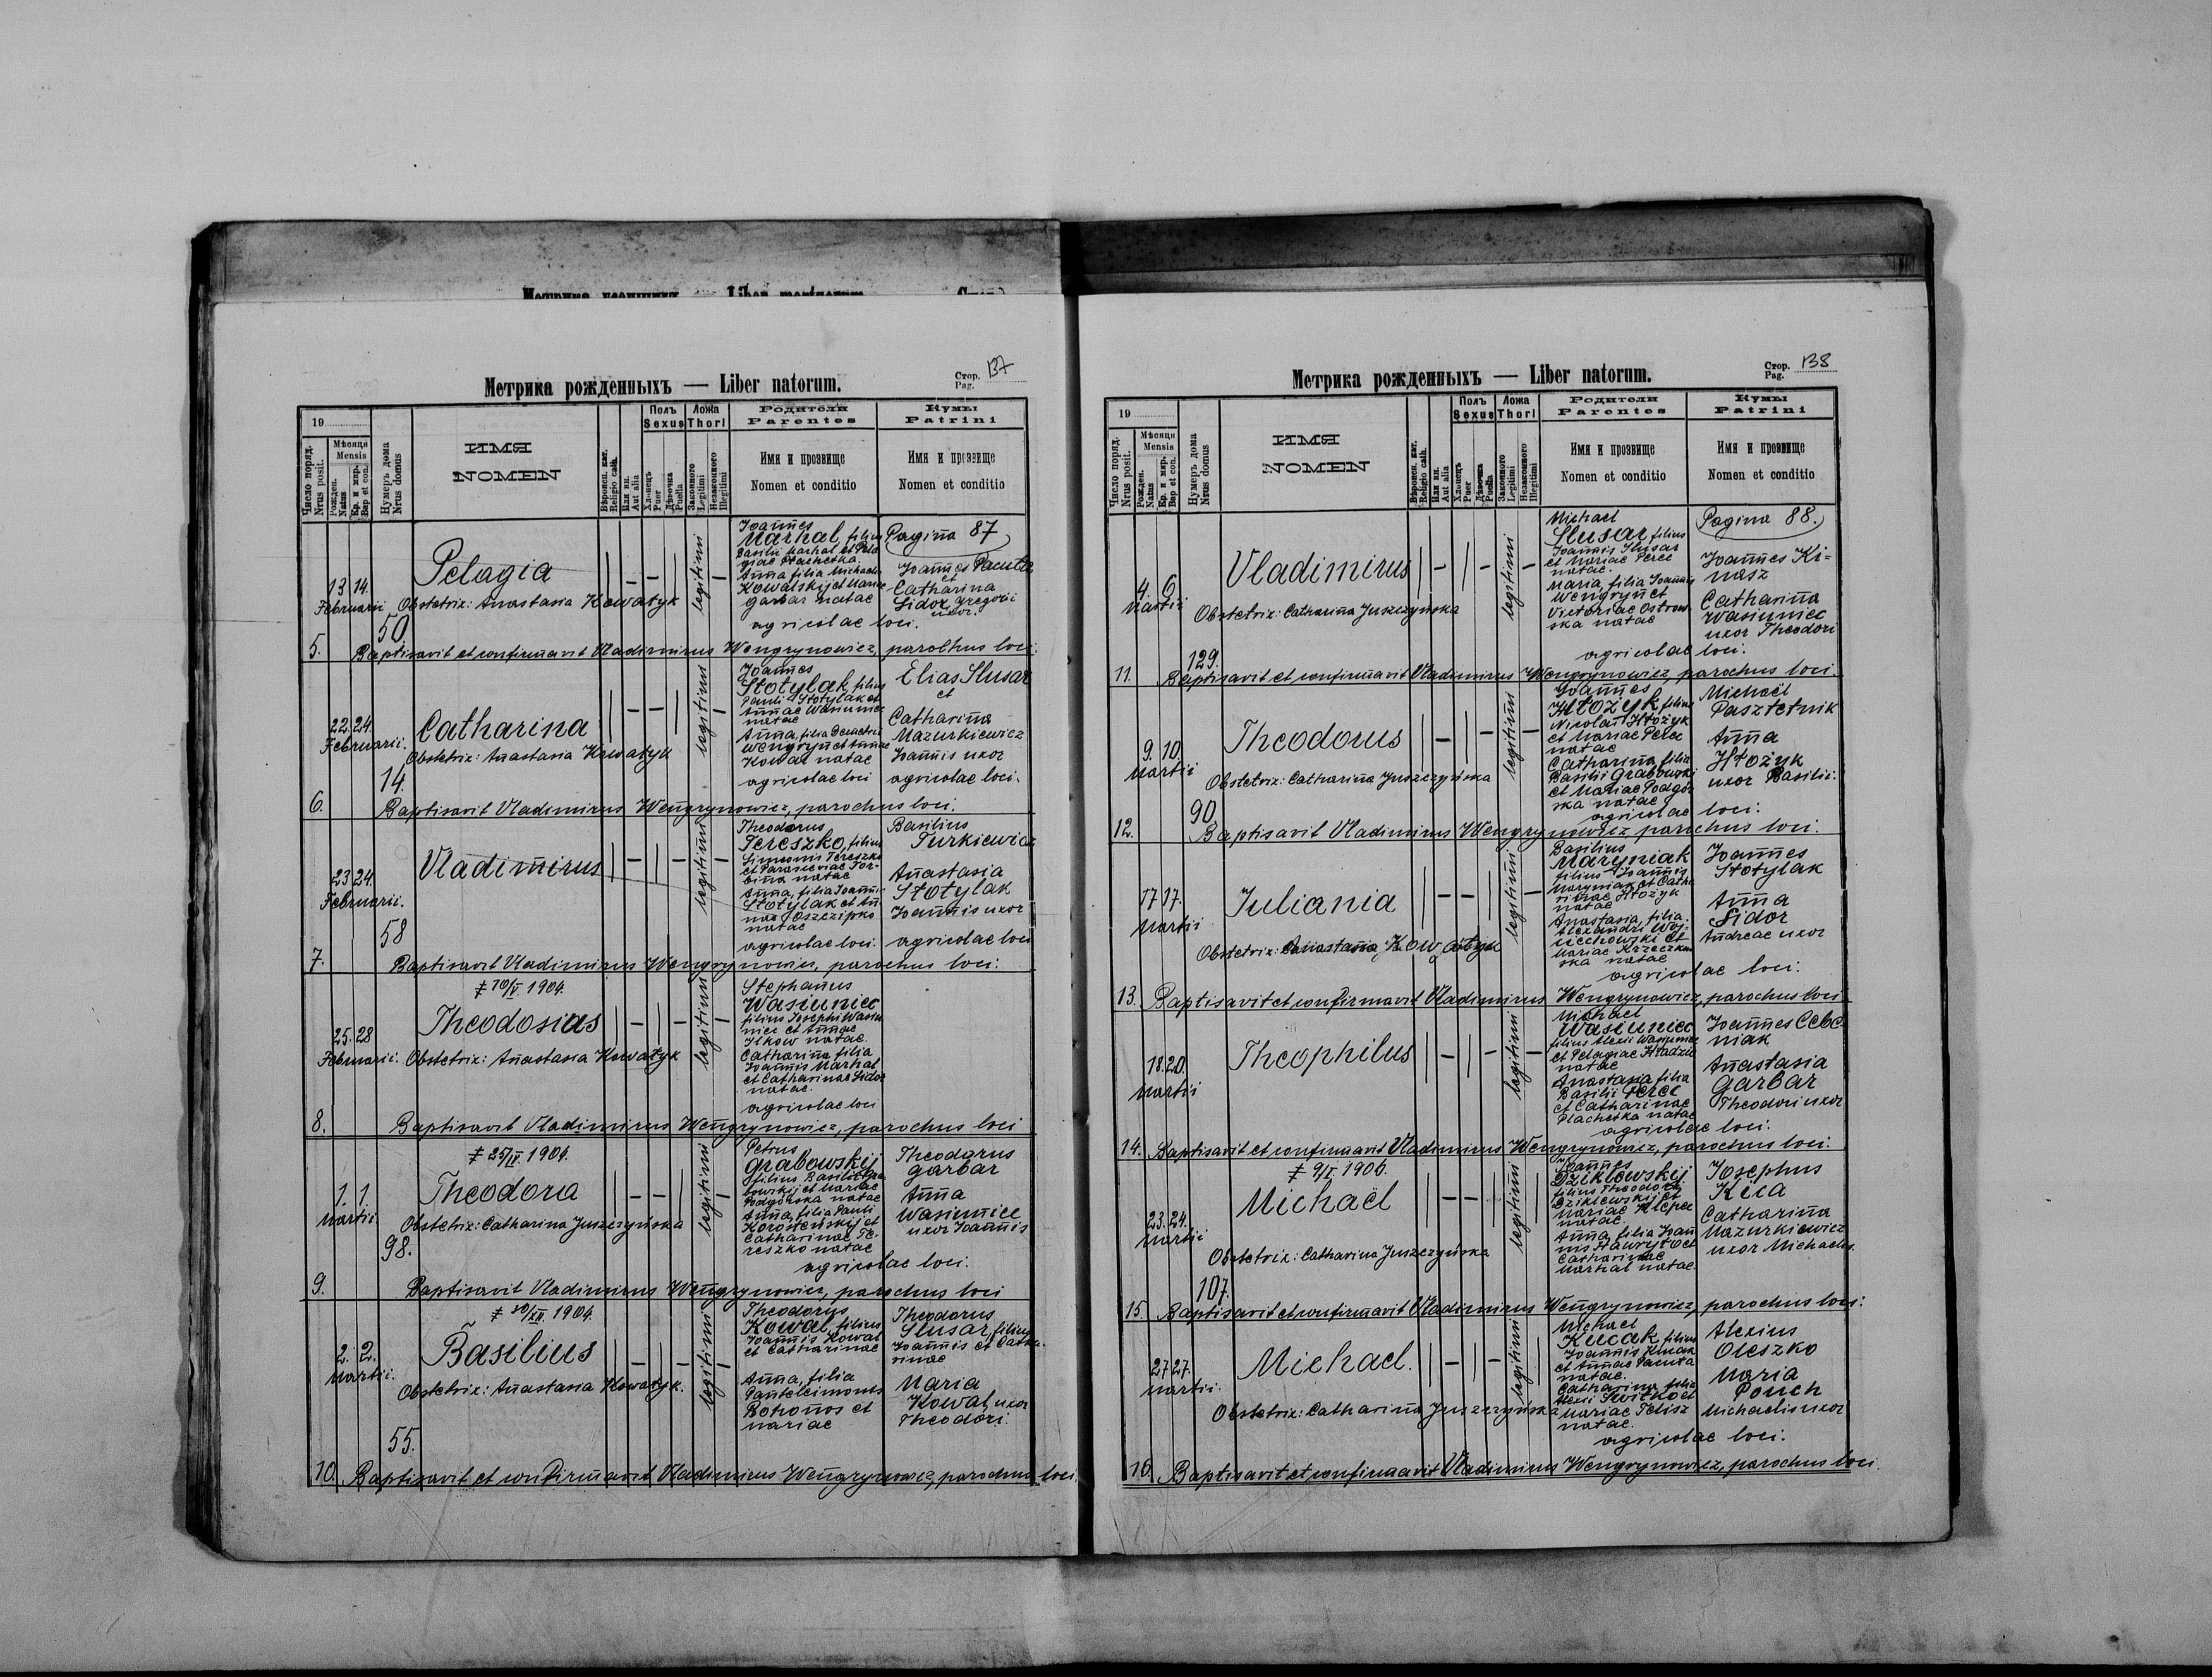 Метрика рожденныхъ — Liber natorum.
Стор. Pag. 137
19
Число поряд. Nrus posit.
Мѣсяця Mensis
Рожден. Natus
Кр. и мир. Bap et con.
Нумеръ дома Nrus domus
ИМЯ
NOMEN
Вѣроисп. кат. Religio cath.
Или ин. Aut alia
Полъ Sexus
Хлопецъ Puer
Дѣвочка Puella
Ложа Thori
Законного Legitimi
Незаконного Illegitimi
Родители
Parentes
Имя и прозвище
Nomen et conditio
Кумы
Patrini
Имя и прозвище
Nomen et conditio
Pagina 87
13 14.
Februarii
50.
Pelagia
Obstetrix: Anastasia Kowatyk
legitimi
Joannes
Marhal, filius
Basilii Marhal et Pela
giae Plachetka.
Anna filia Michaelis
Kowalskij et Mariae
Garbar natae
agricolae loci.
Joannes Pacuta
et
Catharina
Sidor Gregorii
uxor.
5. Baptisavit et confirmavit Vladimirus Wengrynowicz, parochus loci.
22. 24.
Februarii.
14.
Catharina
Obstetrix: Anastasia Kowatyk
legitimi
Joannes
Stotylak, filius
Pauli Stotylak et
Annae Wasiuniec
natae
Anna, filia Demetrii
Wengryn et Annae
Kowal natae
agricolae loci
Elias Slusar
et
Catharina
Mazurkiewicz
Joannis uxor
agricolae loci.
6. Baptisavit Vladimirus Wengrynowicz, parochus loci.
23 24.
Februarii.
58
Vladimirus
legitimi
Theodorus
Tereszko, filius
Simeonis Tereszko
natae
Anna, filia Joannis
Stotylak et An
nae Oszczipko
natae
agricolae loci.
Basilius
Turkiewicz
Anastasia
Stotylak
Joannis uxor
agricolae loci
7. Baptisavit Vladimirus Wengrynowicz, parochus loci.
‡ 10/V 1904.
25. 28
Februarii.
Theodosius
Obstetrix: Anastasia Kowatyk
legitimi
Stephanus
Wasiuniec
filius Josephi Wasiu
niec et Annae
Ilkow natae.
Catharina filia
Joannis Marhal
et Catharinae Sidor
natae.
agricolae loci
8. Baptisavit Vladimirus Wengrynowicz, parochus loci
‡ 25/IV 1904.
1. 1.
Martii
98.
Theodora
Obstetrix: Catharina Juszczyńska
legitimi
Petrus
Grabowskij
filius Basilii Gra
bowskij et Mariae
Podgórska natae
Anna, filia Pauli
Catharinae Te-
reszko natae
agricolae loci.
Theodorus
Garbar
Anna
Wasiuniec
uxor Joannis
9. Baptisavit Vladimirus Wengrynowicz, parochus loci
1904.
2. 2.
Martii.
55.
Basilius
Obstetrix: Anastasia Kowatyk.
legitimi
Theodorus
Kowal, filius
Joannis Kowal
et Catharinae
Anna, filia
Panteleimonis
Bohonos et
Mariae
Theodorus
Slusar, filius
Joannis et Catha-
rinae
Maria
Kowal, uxor
Theodori
10. Baptisavit et confirmavit Vladimirus Wengrynowicz, parochus loci
Метрика рожденныхъ — Liber natorum.
Стор. Pag. 138
19
Число поряд. Nrus posit.
Мѣсяця Mensis
Рожден. Natus
Кр. и мир. Bap et con.
Нумеръ дома Nrus domus
ИМЯ
NOMEN
Вѣроисп. кат. Religio cath.
Или ин. Aut alia
Полъ Sexus
Хлопецъ Puer
Дѣвочка Puella
Ложа Thori
Законного Legitimi
Незаконного Illegitimi
Родители
Parentes
Имя и прозвище
Nomen et conditio
Кумы
Patrini
Имя и прозвище
Nomen et conditio
Pagina 88.
4. 6.
Martii
129.
Vladimirus
Obstetrix: Catharina Juszczyńska
legitimi
Michael
Slusar filius
Joannis Slusar
et Mariae Perec
natae.
Maria, filia Joannis
Wengryn et
Victoriae Ostrow-
ska natae
agricolae loci.
Joannes Ki-
nasz
Catharina
Wasiuniec
uxor Theodori
11. Baptisavit et confirmavit Vladimirus Wengrynowicz, parochus loci.
9. 10.
Martii
90.
Theodorus
Obstetrix: Catharina Juszczyńska
legitimi
Joannes
Htożyk filius
Nicolai Htożyk
et Mariae Perec
natae
Catharina filia
Basilii Grabowski
et Mariae Podgór
ska natae
agricolae loci.
Michaël
Pasztetnik
Anna
Htożyk
uxor Basilii.
12. Baptisavit Vladimirus Wengrynowicz, parochus loci.
17 17.
Martii
Juliania
Obstetrix: Anastasia Kowatyk
legitimi
Basilius
Maryniak
filius Joannis
Maryniak et Catha
rinae Htożyk
natae
Anastasia, filia
Alexandri Woj-
ciechowski et
Mariae
ska natae
agricolae loci.
Joannes
Stotylak
Anna
Sidor
Andreae uxor
13. Baptisavit et confirmavit Vladimirus Wengrynowicz, parochus loci
18. 20.
Martii
Theophilus
legitimi
Michael
Wasiuniec
filius Alexii Wasiuniec
et Pelagiae
natae
Anastasia filia
Basilii Perec
et Catharinae
Plachetka natae
agricolae loci.
Joannes Cebe-
niak
Anastasia
Garbar
Theodori uxor
14. Baptisavit et confirmavit Vladimirus Wengrynowicz, parochus loci.
‡ 9/I 1906.
23. 24.
Martii
107.
Michaël
Obstetrix: Catharina Juszczyńska
legitimi
Joannes
Dziklewskij
filius Theodori
Dziklewskij et
Mariae
natae.
Anna, filia Joan
nis Hawryto et
Catharinae
Marhal natae.
Josephus
Catharina
Mazurkiewicz
uxor Michaelis.
15. Baptisavit et confirmavit Vladimirus Wengrynowicz, parochus loci.
27 27.
Martii.
Michael.
Obstetrix: Catharina Juszczyńska
legitimi
Michael
Kucak filius
Joannis Kucak
et Annae Pacuta
natae.
Catharina filia
Alexii Switko et
Mariae Telisz
natae.
agricolae loci.
Alexius
Oleszko
Maria
Pouch
Michaelis uxor
16. Baptisavit et confirmavit Vladimirus Wengrynowicz, parochus loci.